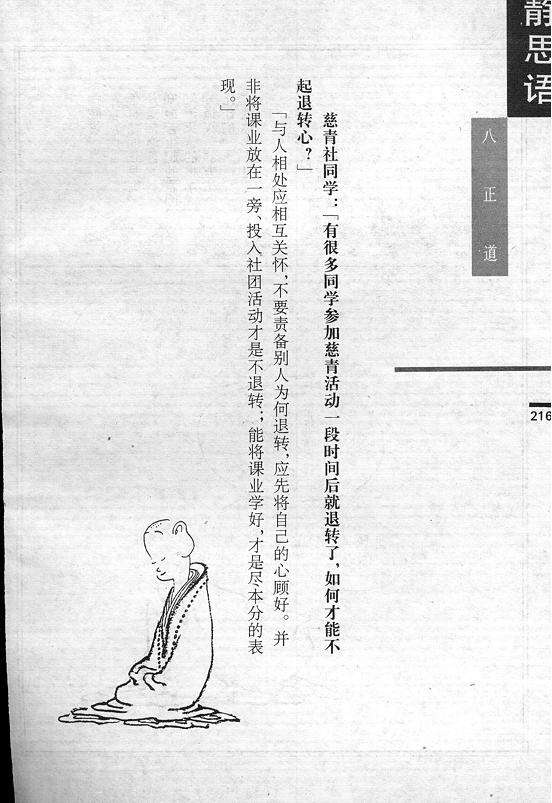 静思语
八正道
216
慈青社同学：「有很多同学参加慈青活动一段时间后就退转了，如何才能不
起退转心？」
「与人相处应相互关怀，不要责备别人为何退转，应先将自己的心顾好。并
非将课业放在一旁、投入社团活动才是不退转；能将课业学好，才是尽本分的表
现。」